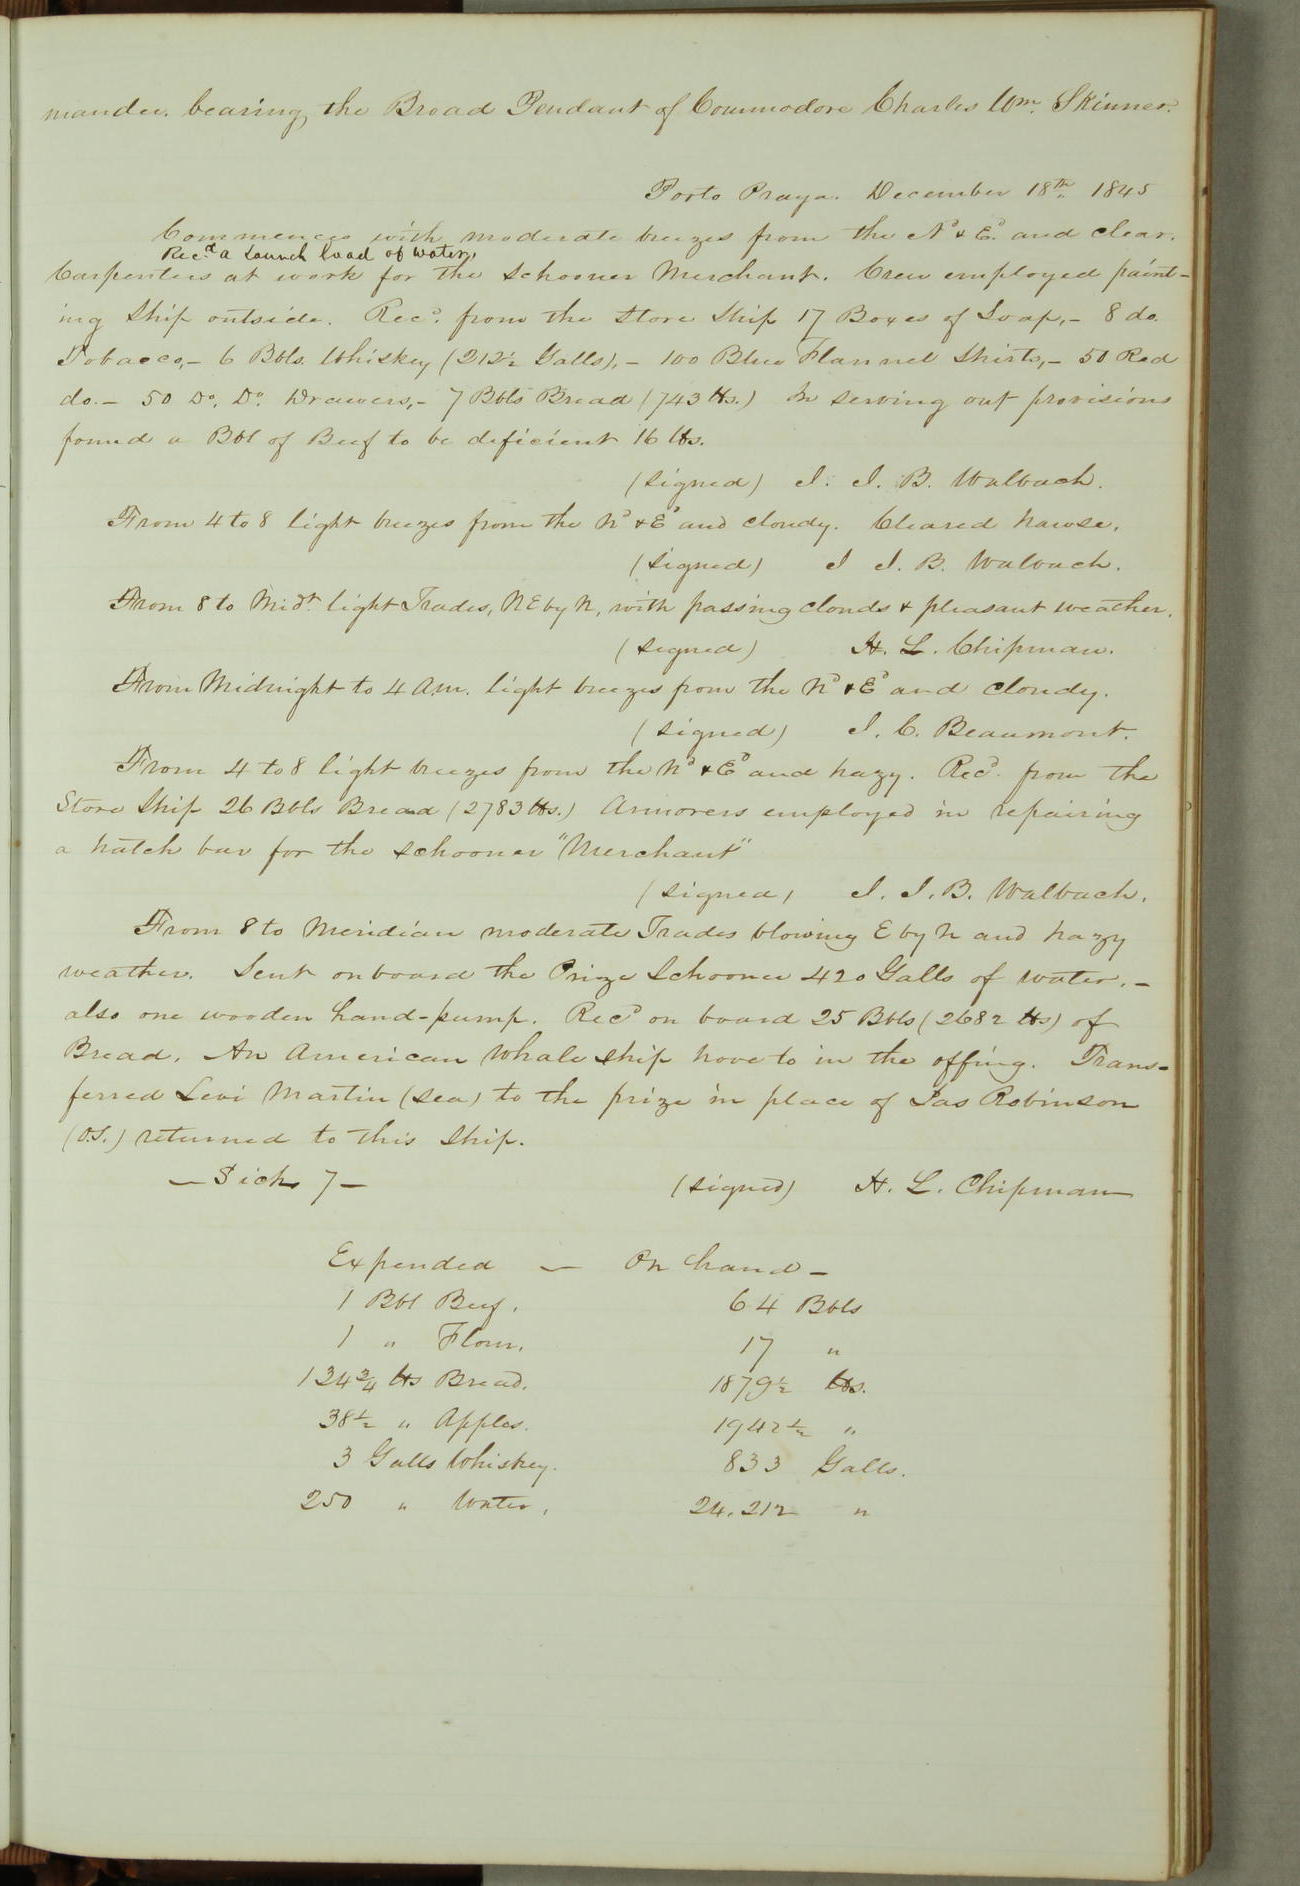 mander. bearing, the Broad Pendant of Commodore Charles Wm. Skinner.
Porto Praya. December 18th 1845
Commences with moderate breezes from the Nd & Ed. and clear.
Rec.d a launch load of water,
Carpenters at work for the schooner Merchant. Crew employed paint-
ing ship outside. Recd. from the Store Ship 17 Boxes of Soap,- 8 do.
Tobacco,- 6 Bbls. Whiskey (212½ Galls),- 100 Blue Flannel Shirts,- 50 Red
do.- 50 Do. Do. Drawers,- 7 Bbls Bread (743 lbs.) In serving out provisions
found a Bbl of Beef to be deficient 16 lbs.
(signed) J. J. B. Walbach.
From 4 to 8 light breezes from the Nd & Ed and cloudy. Cleared hawse.
(signed) J J. B. Walbach.
From 8 to Midt. light Trades, NE by N, with passing clouds & pleasant weather.
(signed) H. L. Chipman.
From Midnight to 4 Am. light breezes from the Nd & Ed and cloudy.
(signed) J. C. Beaumont.
From 4 to 8 light breezes from the Nd & Ed and hazy. Recd. from the
Store Ship 26 Bbls Bread (2783 lbs.) Armorers employed in repairing
a hatch bar for the schooner "Merchant"
(signed) J. J. B. Walbach.
From 8 to Meridian moderate Trades blowing E by N and hazy
weather. Sent on board the Prize Schooner 420 Galls of water.-
also one wooden hand-pump. Recd on board 25 Bbls (2682 lbs) of
Bread. An American Whale ship hove to in the offing. Trans-
ferred Levi Martin (sea) to the prize in place of Jas Robinson
(O.S.) returned to this ship.
— Sick 7 — (signed) H. L. Chipman
Expended — On hand —
1 Bbl Beef. 64 Bbls
1 " Flour. 17 "
124¾ lbs Bread. 1879½ lbs.
38½ " Apples. 1942½ "
3 Galls Whiskey. 833 Galls.
250 " Water. 24.212 "